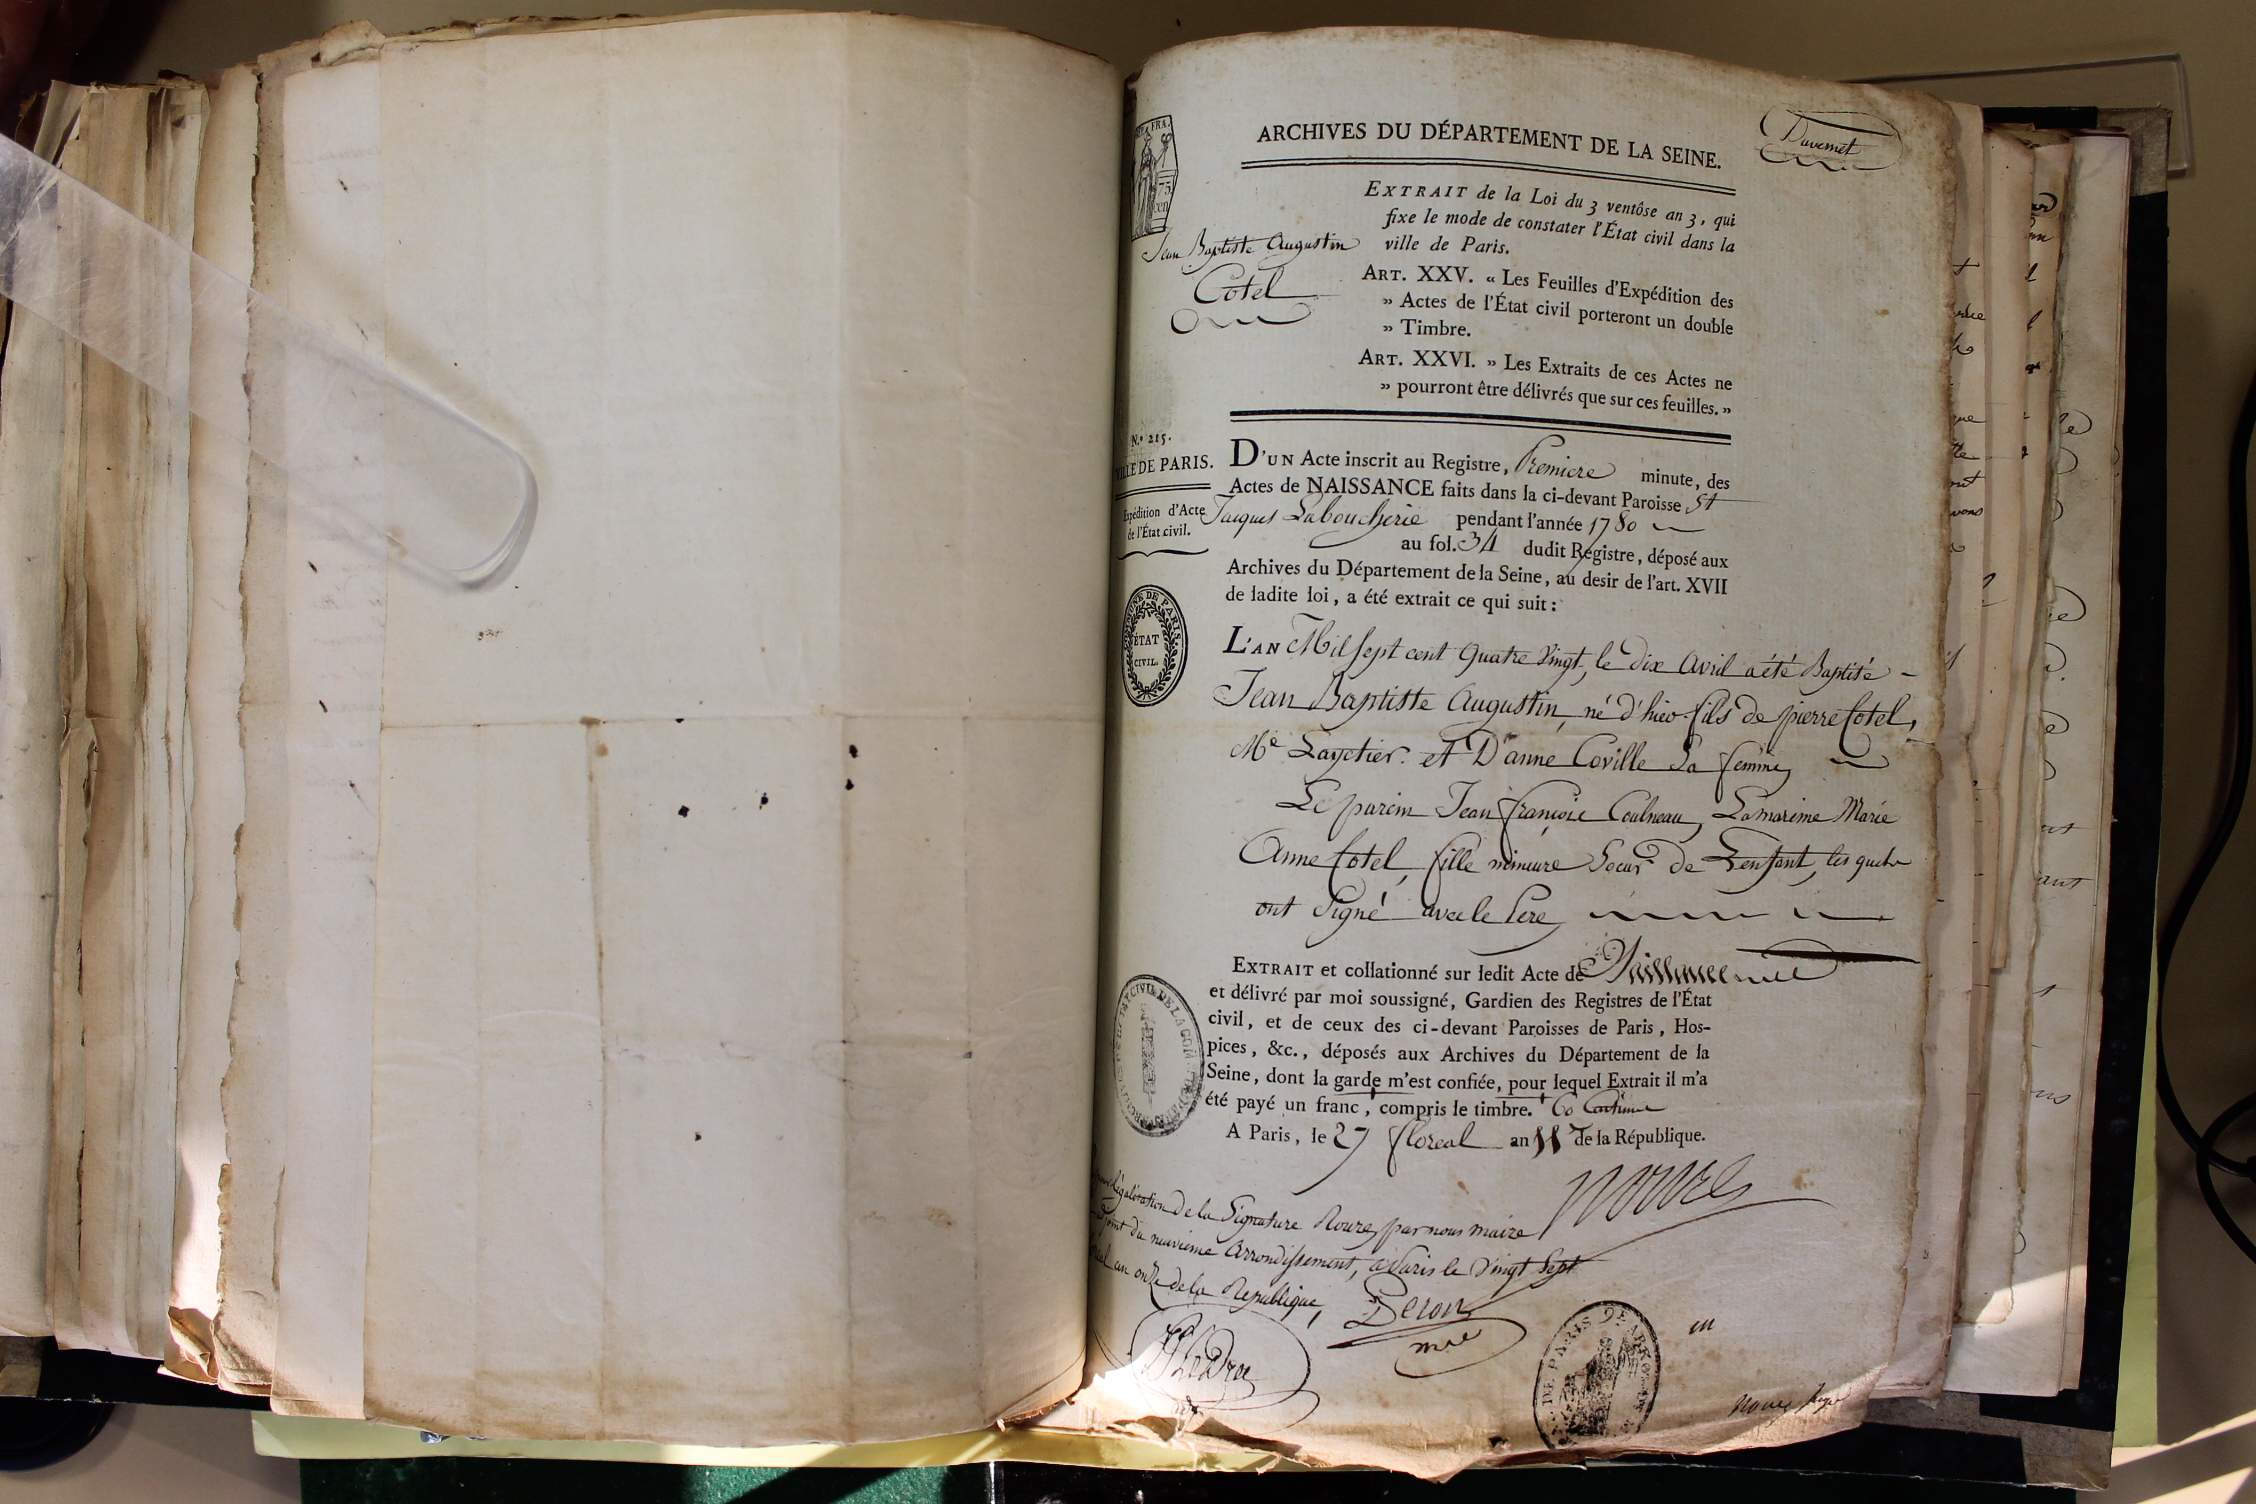 ARCHIVES DU DÉPARTEMENT DE LA SEINE.
FRA.
75
cen
EXTRAIT de la Loi du 3 ventôse an 3, qui
fixe le mode de constater l'État civil dans la
ville de Paris.
Jean Baptiste Augustin
Cotel
ART. XXV. « Les Feuilles d'Expédition des
» Actes de l'État civil porteront un double
» Timbre.
ART. XXVI. » Les Extraits de ces Actes ne
» pourront être délivrés que sur ces feuilles. »
N.º 215.
VILLE DE PARIS.
Expédition d'Acte
de l'État civil.
D'UN Acte inscrit au Registre, Premiere minute, des
Actes de NAISSANCE faits dans la ci-devant Paroisse St
Jacques Laboucherie pendant l'année 1780
au fol. 34 dudit Registre, déposé aux
Archives du Département de la Seine, au desir de l'art. XVII
de ladite loi, a été extrait ce qui suit :
COMMUNE DE PARIS.
ÉTAT
CIVIL.
L'AN Mil Sept cent Quatre Vingt, le dix Avril a été Baptisé
Jean Baptiste Augustin, né d'hier fils de pierre Cotel,
Me Layetier. et D'anne Coville Sa femme,
Le parein Jean François Coulneau, La mareine Marie
Anne Cotel, fille mineure Soeur de Lenfant, les quels
ont Signé avec le Pere
EXTRAIT et collationné sur ledit Acte de Naissance
et délivré par moi soussigné, Gardien des Registres de l'État
civil, et de ceux des ci-devant Paroisses de Paris, Hos-
pices, &c., déposés aux Archives du Département de la
Seine, dont la garde m'est confiée, pour lequel Extrait il m'a
été payé un franc, compris le timbre. 60 Centimes
A Paris, le 27 floreal an 11 de la République.
Légalisation de la Signature Rouze, par nous maire
du neuvieme Arrondissement, à Paris le Vingt Sept
an onze de la Republique,
DE PARIS 9E ARRON